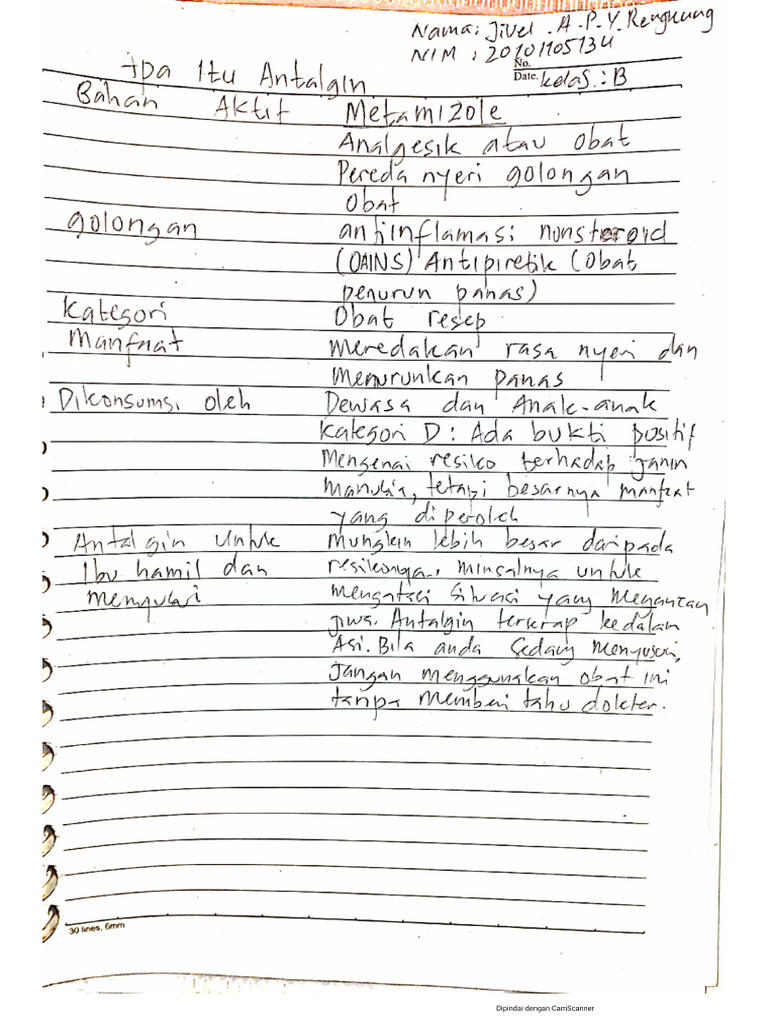 Nama: Jivel .A.P.Y. Rengkung
NIM : 20101105134
No.
Date. kelas : B
Apa Itu Antalgin
Bahan Aktif Metamizole
Analgesik atau Obat
Pereda nyeri golongan
Obat
golongan antiinflamasi nonsteroid
(OAINS) Antipiretik (Obat
penurun panas)
Kategori Obat resep
Manfaat Meredakan rasa nyeri dan
Menurunkan Panas
Dikonsumsi oleh Dewasa dan Anak-anak
Kategori D: Ada bukti positif
Mengenai resiko terhadap janin
Manusia, tetapi besarnya manfaat
yang diperoleh
Antalgin untuk mungkin lebih besar daripada
Ibu hamil dan resikonya, misalnya untuk
menyusui mengatasi Situasi yang Mengancam
jiwa. Antalgin terserap kedalam
Asi. Bila anda Sedang Menyusui,
Jangan menggunakan obat ini
tanpa memberi tahu dokter.
30 lines, 6mm
Dipindai dengan CamScanner